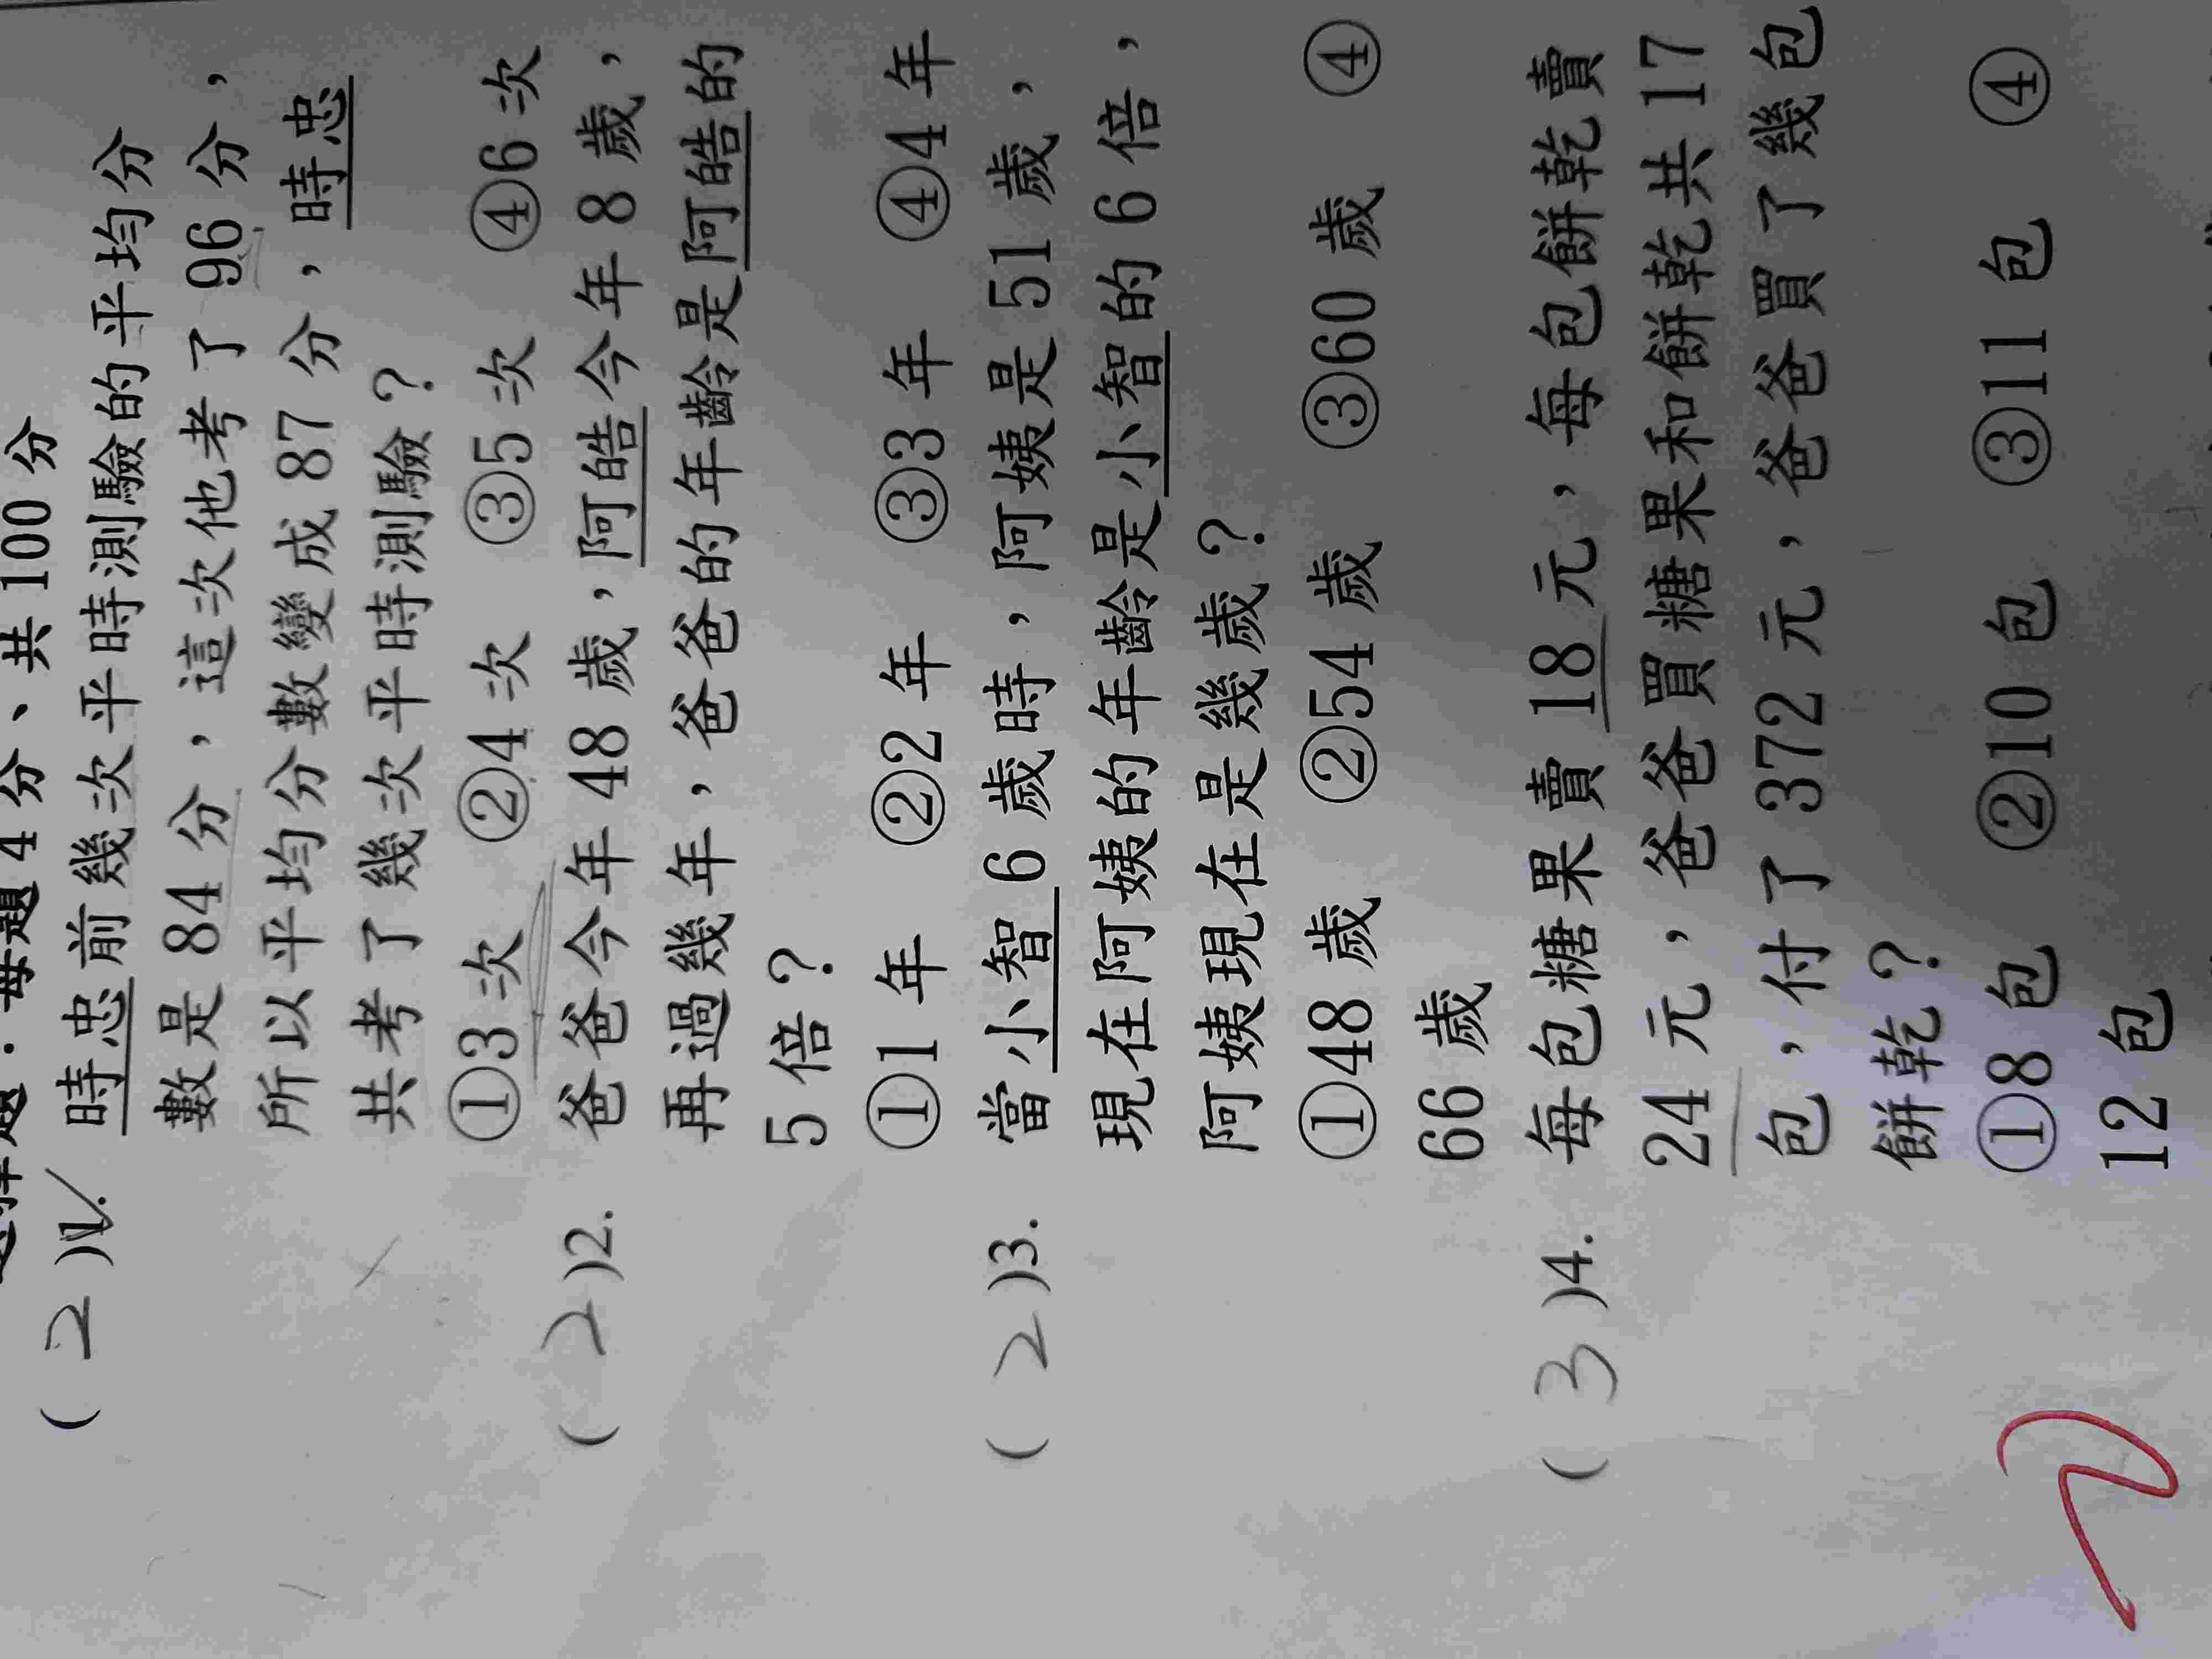 選擇題：每題 4 分、共 100 分
( 2 )1. 時忠前幾次平時測驗的平均分
數是 84 分，這次他考了 96 分，
所以平均分數變成 87 分，時忠
共考了幾次平時測驗？
①3 次 ②4 次 ③5 次 ④6 次
( 2 )2. 爸爸今年 48 歲，阿皓今年 8 歲，
再過幾年，爸爸的年齡是阿皓的
5 倍？
①1 年 ②2 年 ③3 年 ④4 年
( 2 )3. 當小智 6 歲時，阿姨是 51 歲，
現在阿姨的年齡是小智的 6 倍，
阿姨現在是幾歲？
①48 歲 ②54 歲 ③60 歲 ④
66 歲
( 3 )4. 每包糖果賣 18 元，每包餅乾賣
24 元，爸爸買糖果和餅乾共 17
包，付了 372 元，爸爸買了幾包
餅乾？
①8 包 ②10 包 ③11 包 ④
12 包